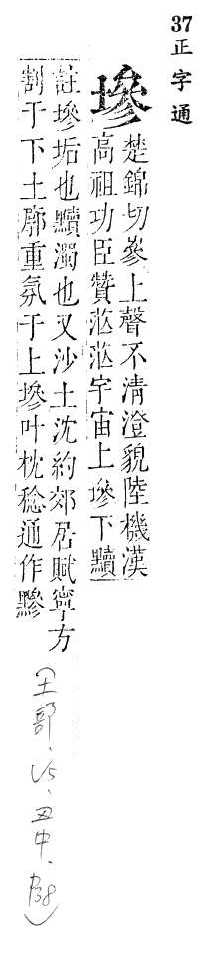 37 正字通
墋
楚錦切參上聲不清澄貌陸機漢
高祖功臣贊茫茫宇宙上墋下黷
註墋垢也黷濁也又沙土沈約郊居賦寧方
割于下土廓重氛于上墋叶枕稔通作黲
(土部、丑中、